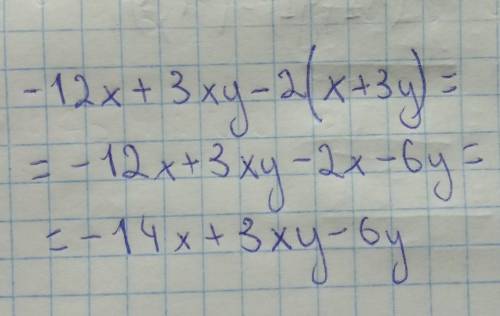 -12x + 3xy - 2(x + 3y) =
= -12x + 3xy - 2x - 6y =
= -14x + 3xy - 6y